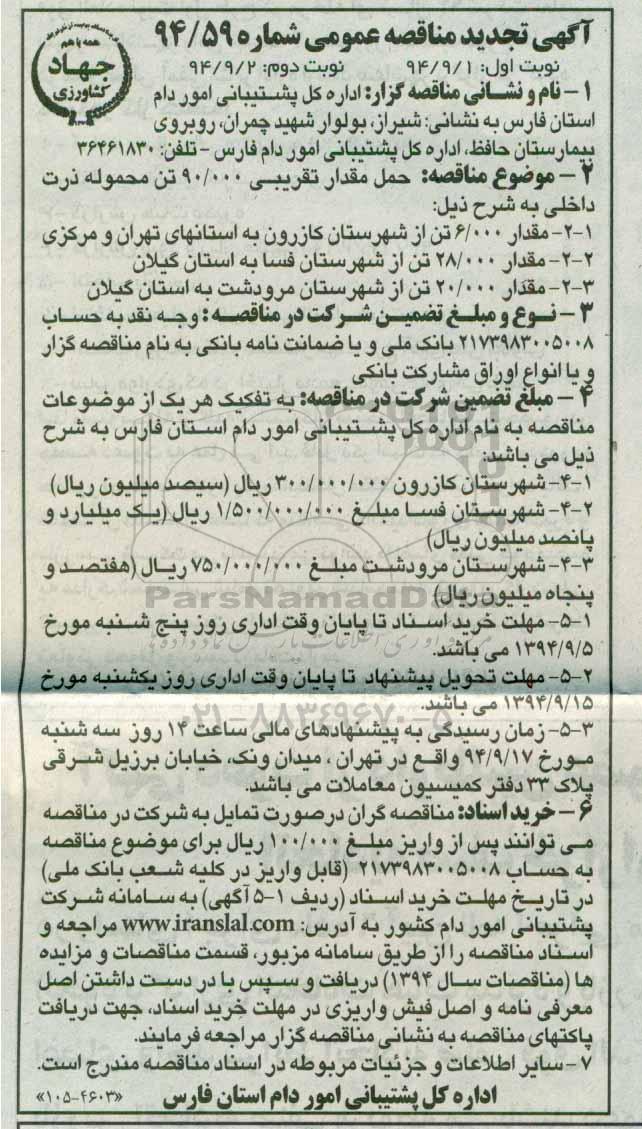 آگهی تجدید مناقصه عمومی شماره ۹۴/۵۹
نوبت اول: ۹۴/۹/۱ نوبت دوم: ۹۴/۹/۲
همه با هم
جهاد
کشاورزی
۱ - نام و نشانی مناقصه گزار: اداره کل پشتیبانی امور دام
استان فارس به نشانی: شیراز، بولوار شهید چمران، روبروی
بیمارستان حافظ، اداره کل پشتیبانی امور دام فارس - تلفن: ۳۶۴۶۱۸۳۰
۲ - موضوع مناقصه: حمل مقدار تقریبی ۹۰/۰۰۰ تن محموله ذرت
داخلی به شرح ذیل:
۲-۱- مقدار ۶/۰۰۰ تن از شهرستان کازرون به استانهای تهران و مرکزی
۲-۲- مقدار ۲۸/۰۰۰ تن از شهرستان فسا به استان گیلان
۲-۳- مقدار ۲۰/۰۰۰ تن از شهرستان مرودشت به استان گیلان
۳ - نوع و مبلغ تضمین شرکت در مناقصه: وجه نقد به حساب
۲۱۷۳۹۸۳۰۰۵۰۰۸ بانک ملی و یا ضمانت نامه بانکی به نام مناقصه گزار
و یا انواع اوراق مشارکت بانکی
۴ - مبلغ تضمین شرکت در مناقصه: به تفکیک هر یک از موضوعات
مناقصه به نام اداره کل پشتیبانی امور دام استان فارس به شرح
ذیل می باشد:
۴-۱- شهرستان کازرون ۳۰۰/۰۰۰/۰۰۰ ریال (سیصد میلیون ریال)
۴-۲- شهرستان فسا مبلغ ۱/۵۰۰/۰۰۰/۰۰۰ ریال (یک میلیارد و
پانصد میلیون ریال)
۴-۳- شهرستان مرودشت مبلغ ۷۵۰/۰۰۰/۰۰۰ ریال (هفتصد و
پنجاه میلیون ریال)
ParsNamadData
۵-۱- مهلت خرید اسناد تا پایان وقت اداری روز پنج شنبه مورخ
۱۳۹۴/۹/۵ می باشد.
۵-۲- مهلت تحویل پیشنهاد تا پایان وقت اداری روز یکشنبه مورخ
۱۳۹۴/۹/۱۵ می باشد.
۰۲۱-۸۸۳۴۹۶۷۰-۵
۵-۳- زمان رسیدگی به پیشنهادهای مالی ساعت ۱۴ روز سه شنبه
مورخ ۹۴/۹/۱۷ واقع در تهران، میدان ونک، خیابان برزیل شرقی
پلاک ۳۳ دفتر کمیسیون معاملات می باشد.
۶ - خرید اسناد: مناقصه گران درصورت تمایل به شرکت در مناقصه
می توانند پس از واریز مبلغ ۱۰۰/۰۰۰ ریال برای موضوع مناقصه
به حساب ۲۱۷۳۹۸۳۰۰۵۰۰۸ (قابل واریز در کلیه شعب بانک ملی)
در تاریخ مهلت خرید اسناد (ردیف ۱-۵ آگهی) به سامانه شرکت
پشتیبانی امور دام کشور به آدرس: www.iranslal.com مراجعه و
اسناد مناقصه را از طریق سامانه مزبور، قسمت مناقصات و مزایده
ها (مناقصات سال ۱۳۹۴) دریافت و سپس با در دست داشتن اصل
معرفی نامه و اصل فیش واریزی در مهلت خرید اسناد، جهت دریافت
پاکتهای مناقصه به نشانی مناقصه گزار مراجعه فرمایند.
۷ - سایر اطلاعات و جزئیات مربوطه در اسناد مناقصه مندرج است.
اداره کل پشتیبانی امور دام استان فارس «۱۰۵-۴۶۰۳»